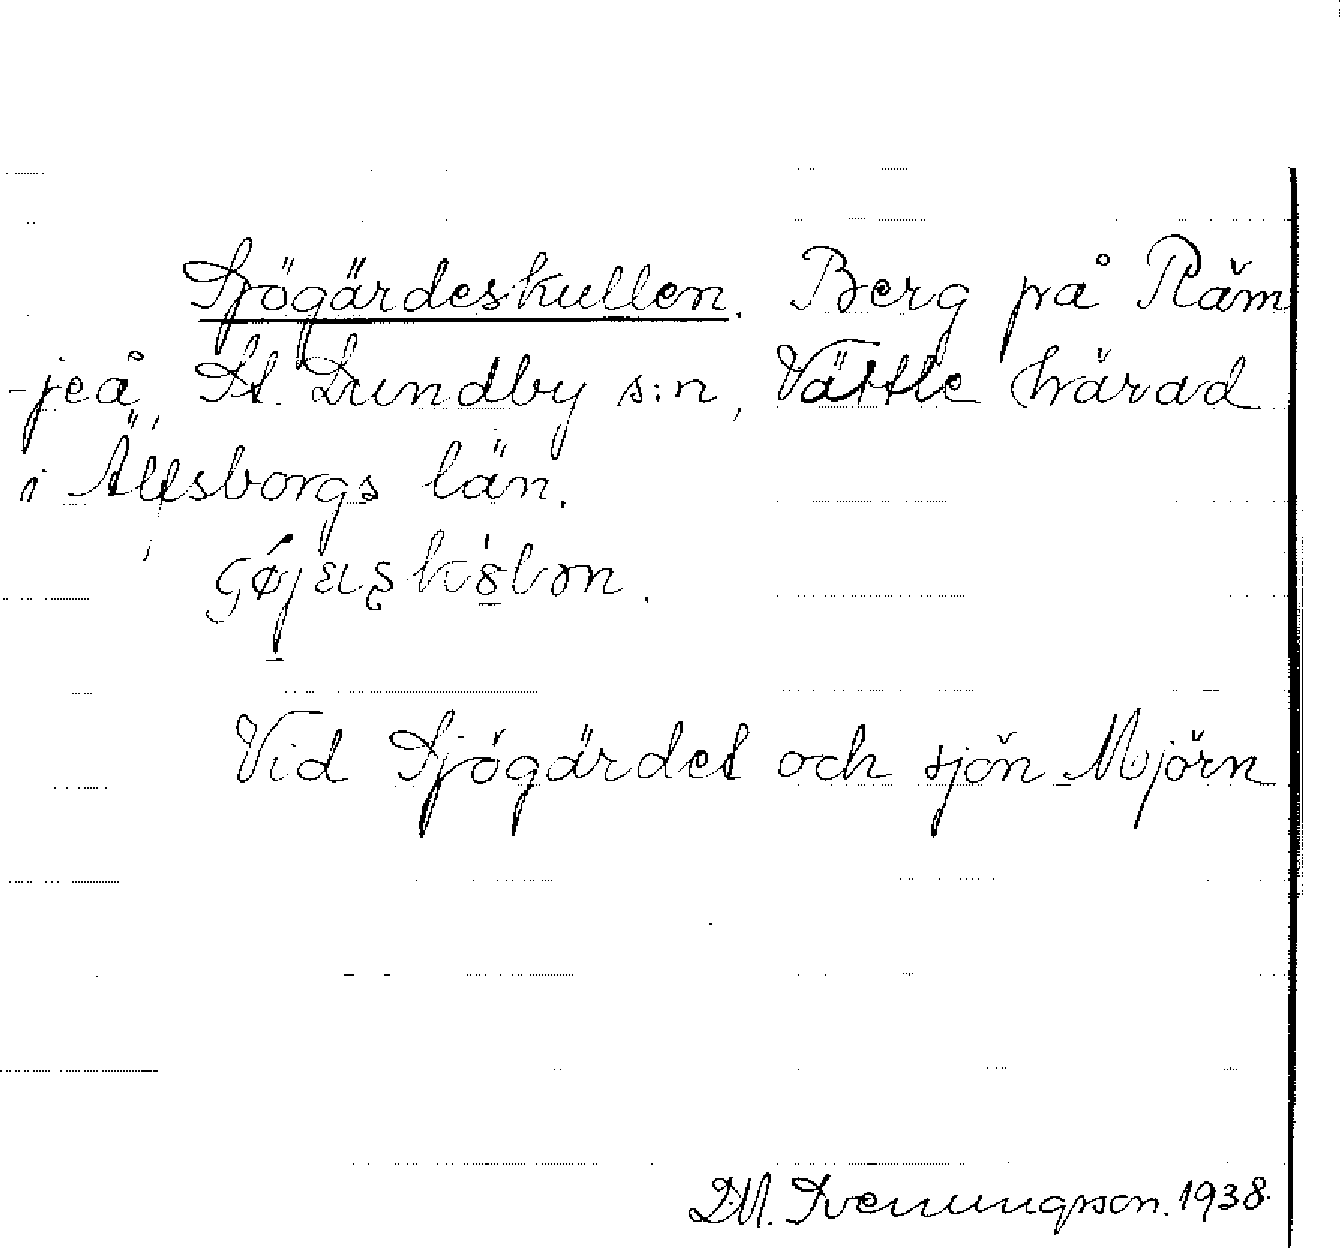 Sjögärdeskullen. Berg på Räm
-jeå, St. Lundby s:n, Vättle härad
i Älfsborgs län.
Vid Sjögärdet och sjön Mjörn
D.M. Svenungsson. 1938.